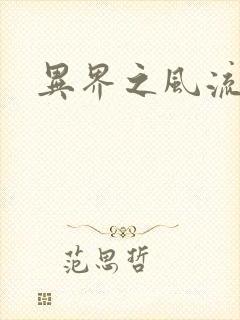 異界之風流
范思哲